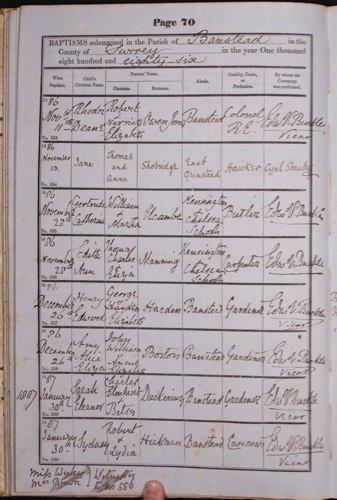 Page 70
BAPTISMS solemnized in the Parish of Banstead in the
County of Surrey in the year One thousand
eight hundred and eighty-six
When Baptized. Child's Christian Name. Parents' Name. Christian. Surname. Abode. Quality, Trade, or Profession. By whom the Ceremony was performed.
1886
Nov 11th Rhoda Deans Robert Harriet Elizabeth Owen Jones Banstead Colonel R.E. Edw V Buckle Vicar
No. 553
1886
November 13. Jane Thomas and Anne Shobridge East Grinstead Hawker
No. 554
1886
November 28th Gertrude Catherine William Martha Kensington & Chelsea Schools Butler Edw V Buckle
No. 555
1886
November 28th Edith Ann Charles Eliza Manning Kensington & Chelsea Schools Carpenter Edw V Buckle
No. 556
1886
December 26th Henry Edward George Elizabeth Harden Banstead Gardener Edw V Buckle Vicar
No. 557
1886
December 26th Amy Alice Eliza John William Elizabeth Boston Banstead Gardener Edw V Buckle Vicar
No. 558
1887
1887
January 30th Sarah Eleanor Charles Betsy Banstead Gardener Edw V Buckle Vicar
No. 559
1887
January 30th Sydney Robert & Lydia Hickman Banstead Edw V Buckle Vicar
No. 560
Miss
556